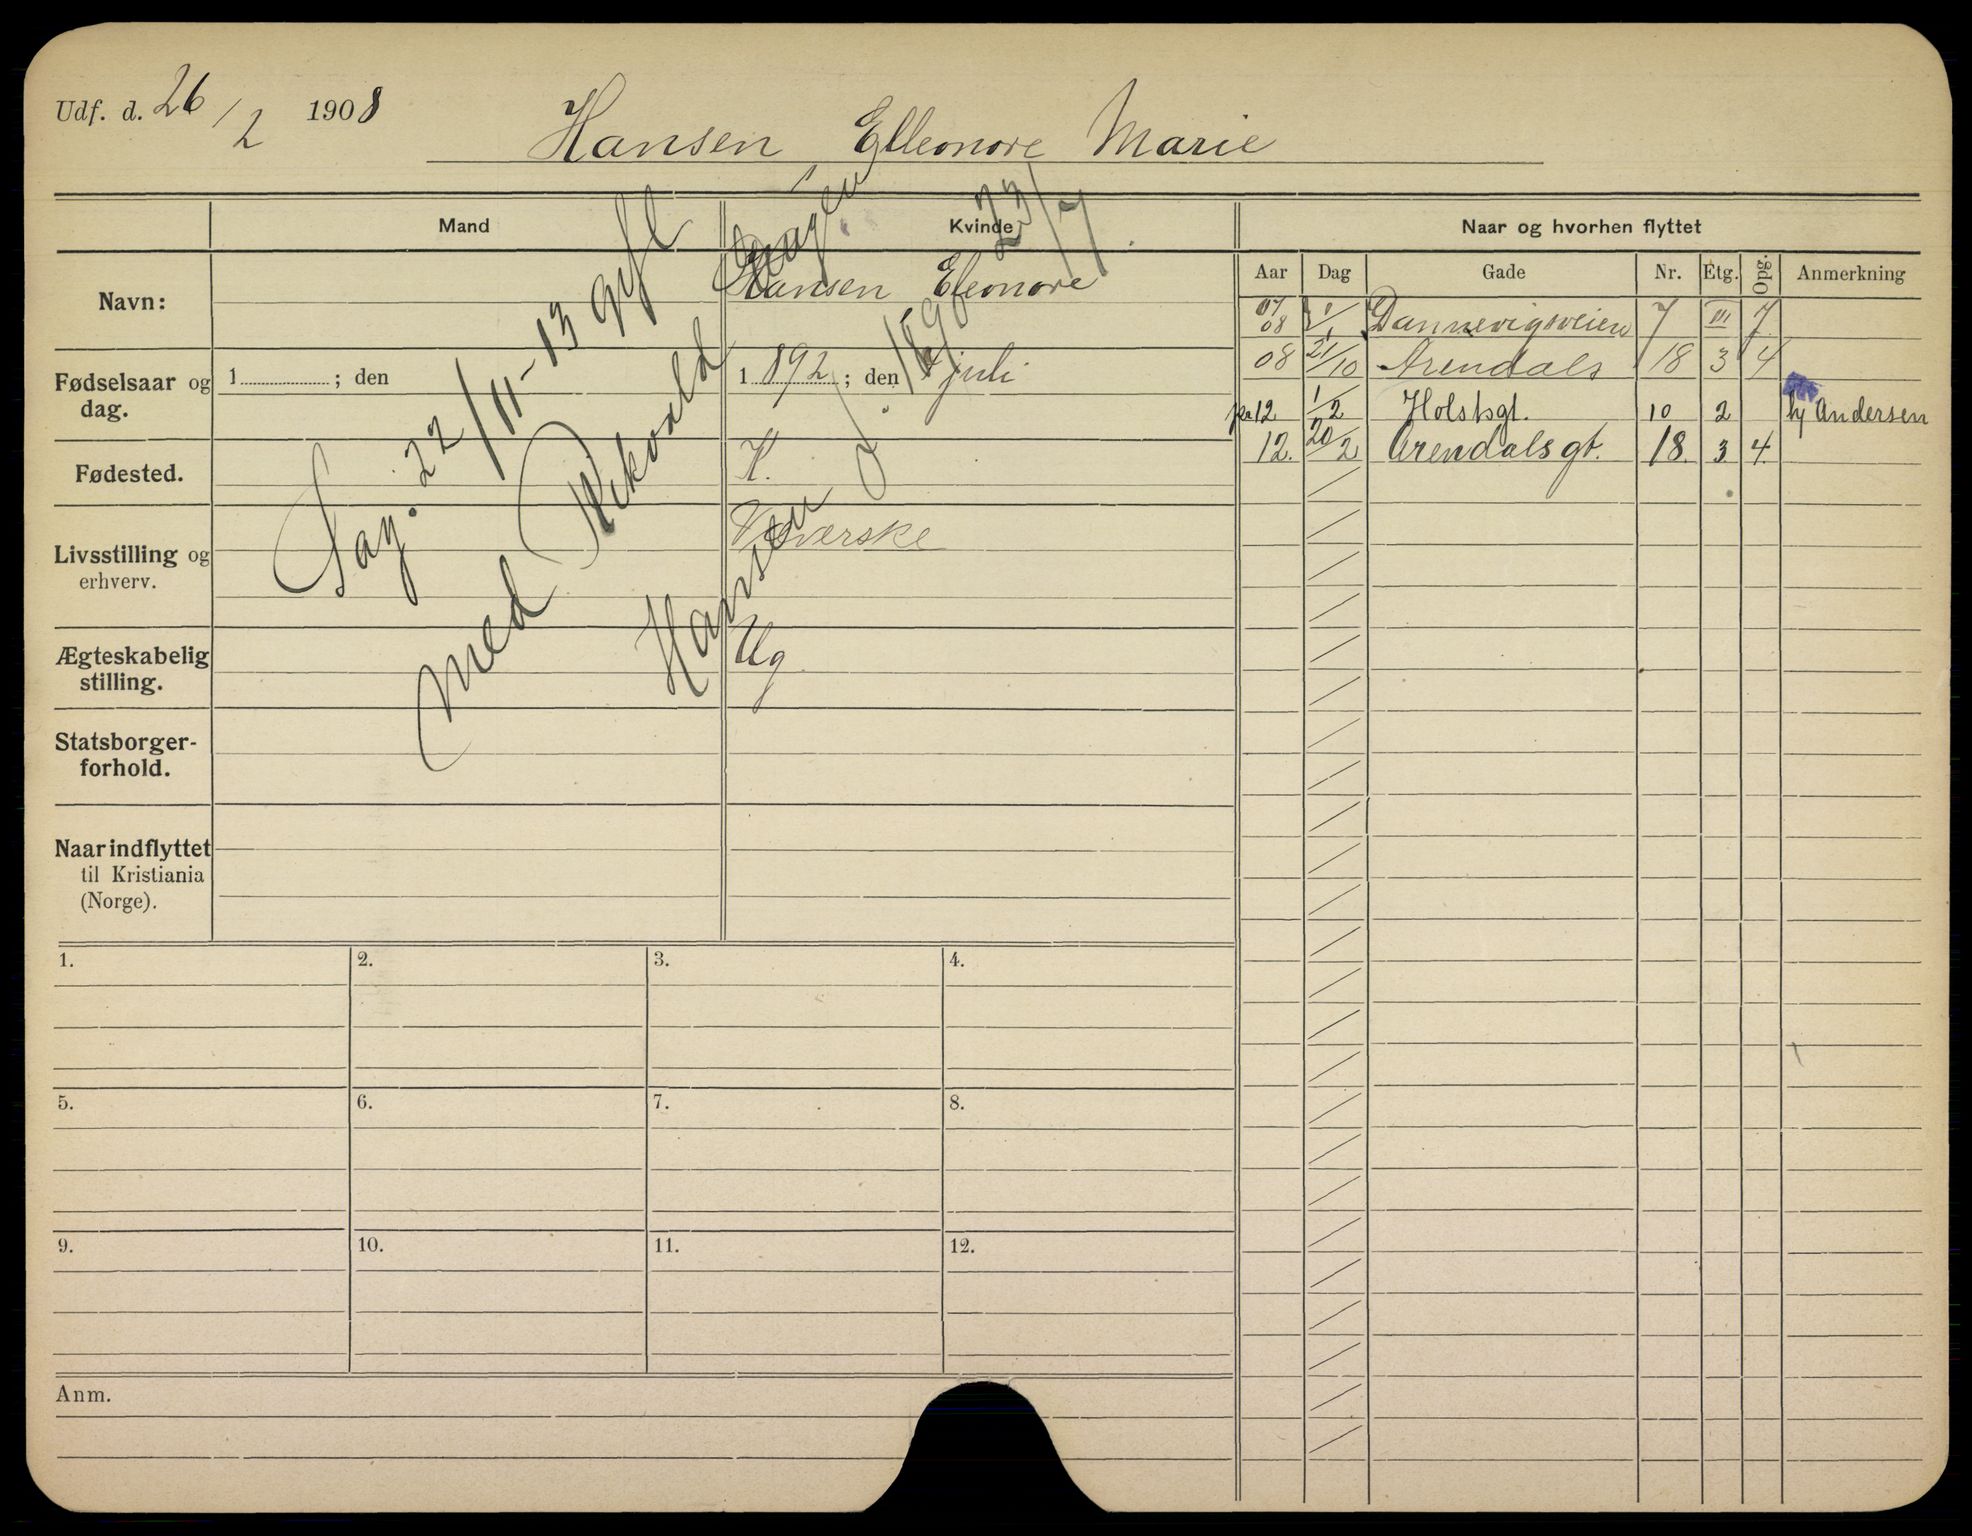 Udf. d. 26/2 1908
Hansen Elleonore Marie
Mand
Kvinde
Naar og hvorhen flyttet
Aar Dag Gade Nr. Etg. Opg. Anmerkning
Navn:
Hansen Eleonore
Fødselsaar og dag.
1 ; den
1892 ; den 4 juli
Fødested.
K.
Livsstilling og erhverv.
Væverske
Ægteskabelig stilling.
Ug
Statsborger-
forhold.
Naar indflyttet
til Kristiania
(Norge).
07 08 1/1 Dannevigsveien 7 III 7
08 21/10 Arendals 18 3 4
12 1/2 Holstsgt. 10 2 hj Andersen
12. 20/2 Arendalsgt. 18. 3 4
Sag. 22/11-13 gift
med Rikvald Hagen
Hansen f. 23/7
1. 2. 3. 4.
5. 6. 7. 8.
9. 10. 11. 12.
Anm.